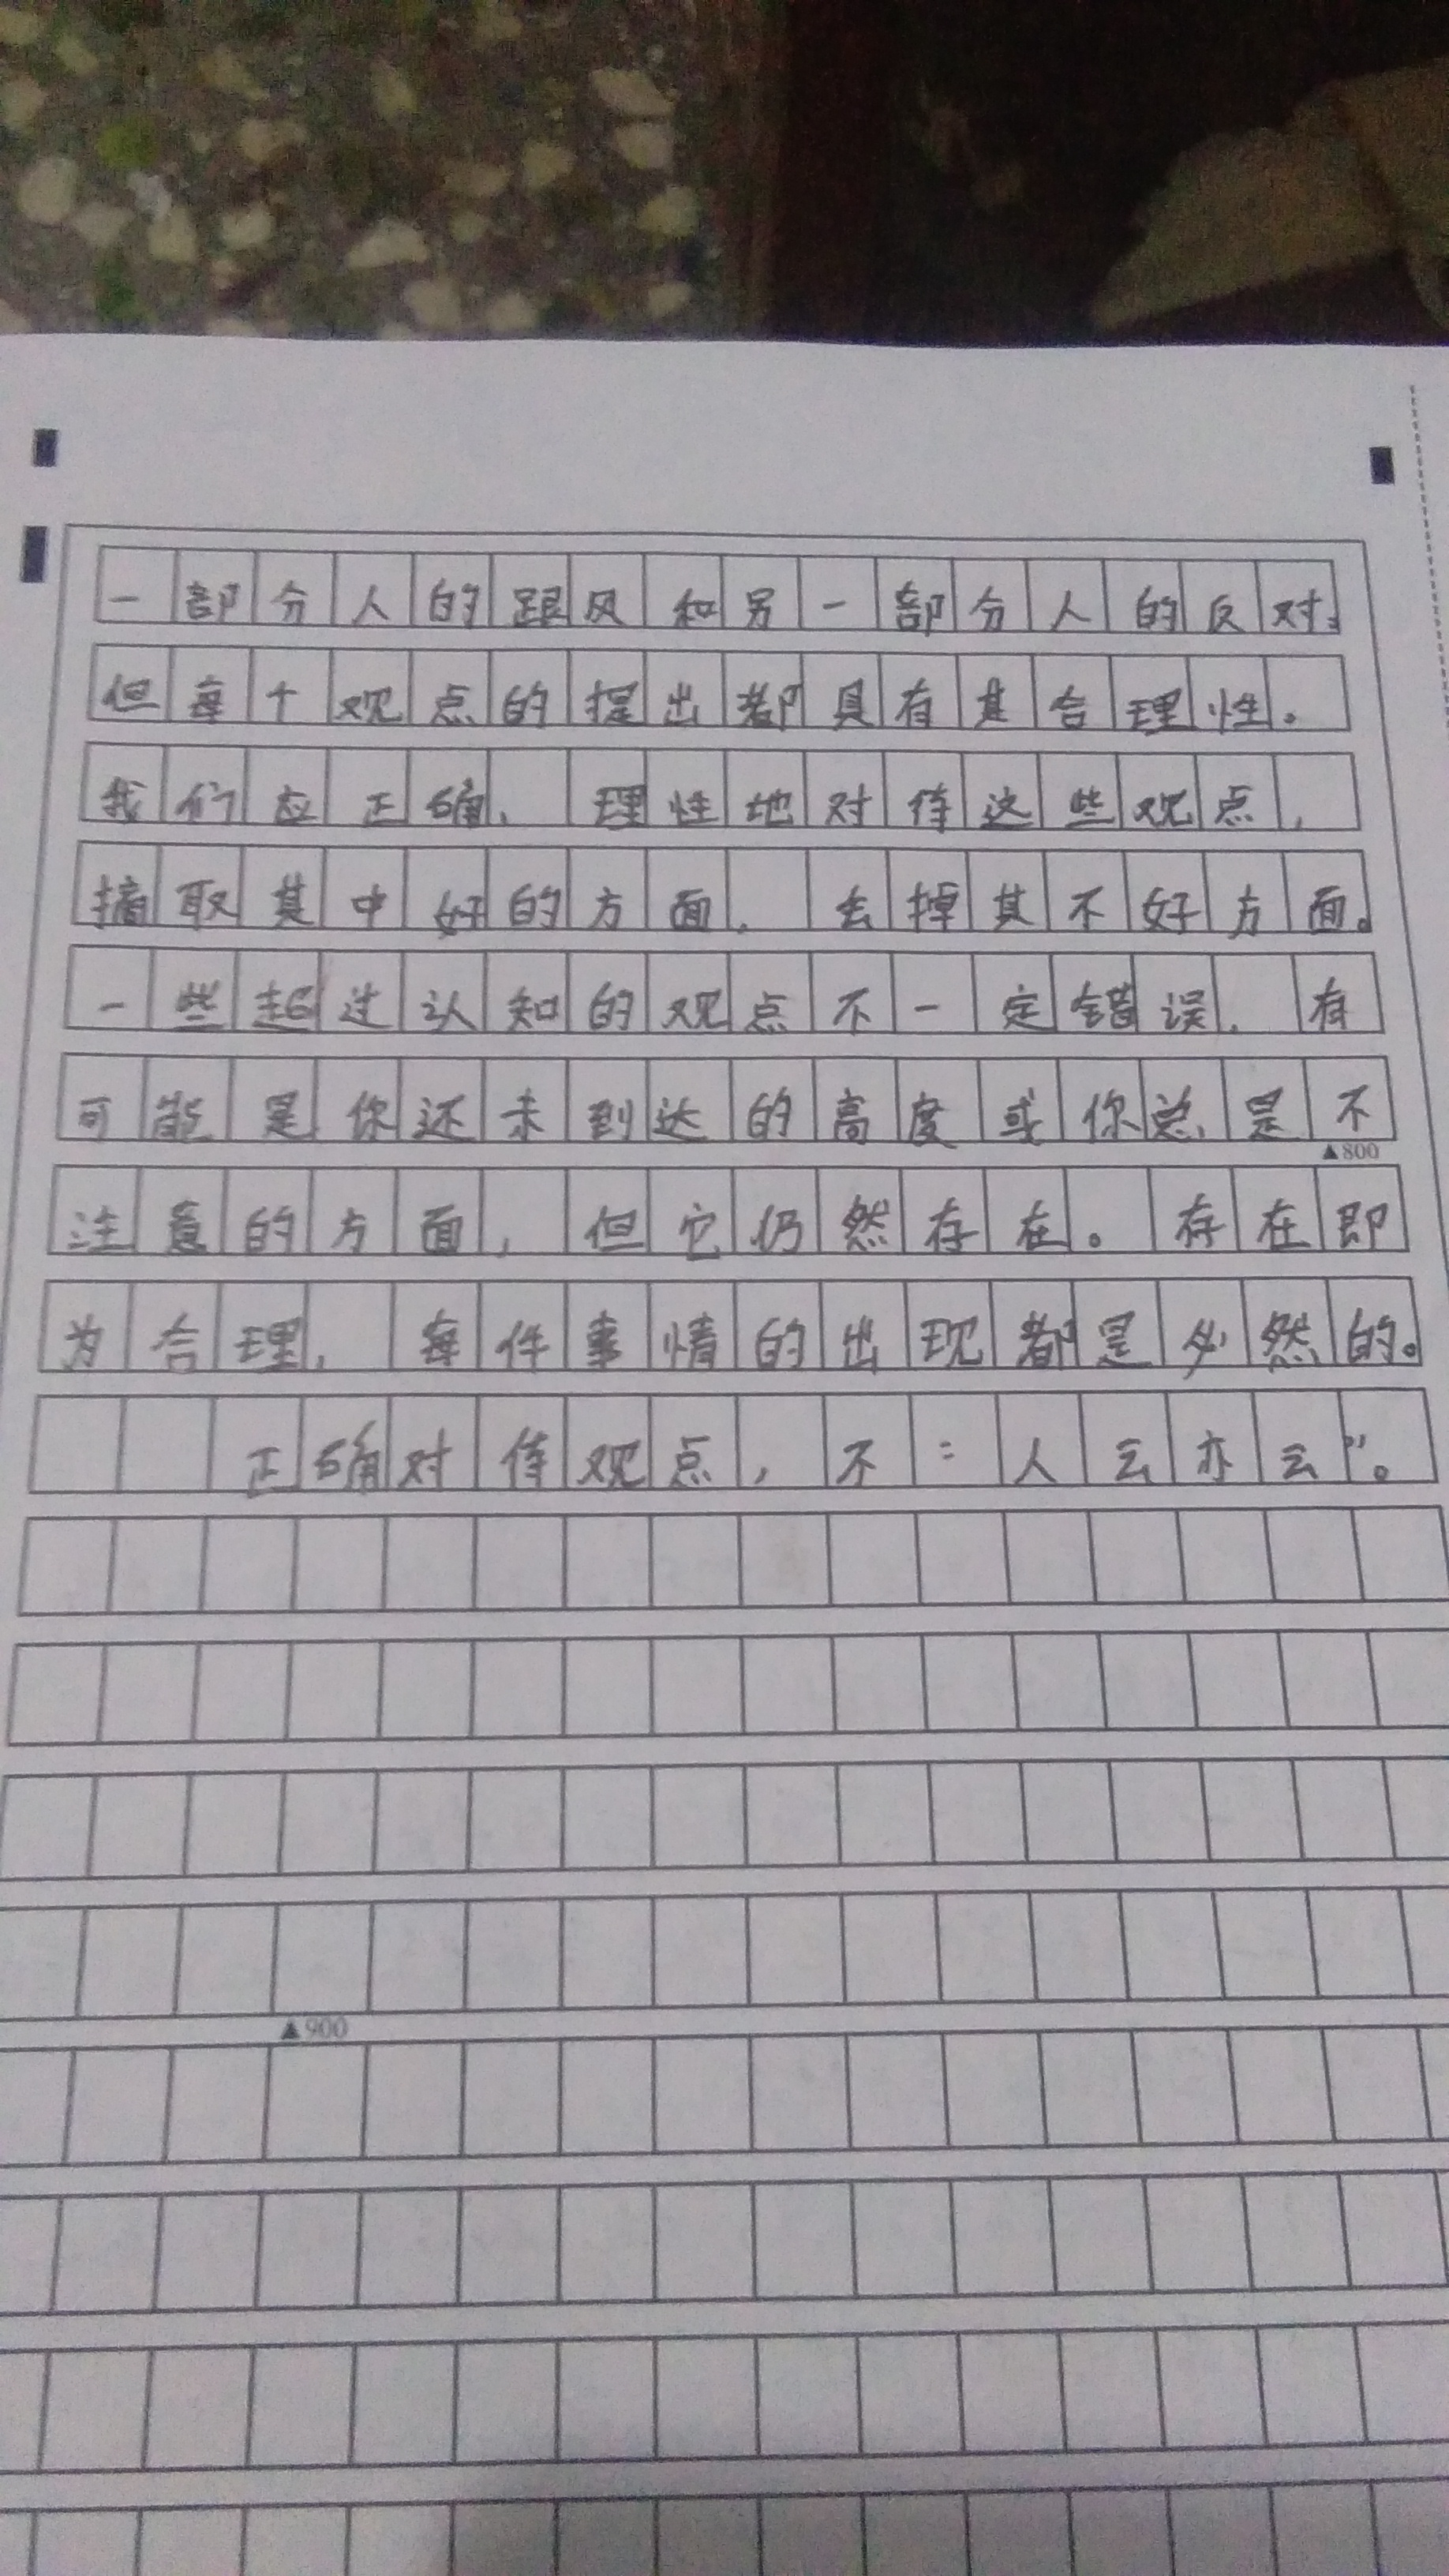 一部分人的跟风和另一部分人的反对。
但每个观点的提出都具有其合理性。
我们应正确、理性地对待这些观点,
摘取其中好的方面,去掉其不好方面。
一些超过认知的观点不一定错误,有
可能是你还未到达的高度或你总是不
▲800
注意的方面,但它仍然存在。存在即
为合理,每件事情的出现都是必然的。
正确对待观点,不“人云亦云”。
▲900